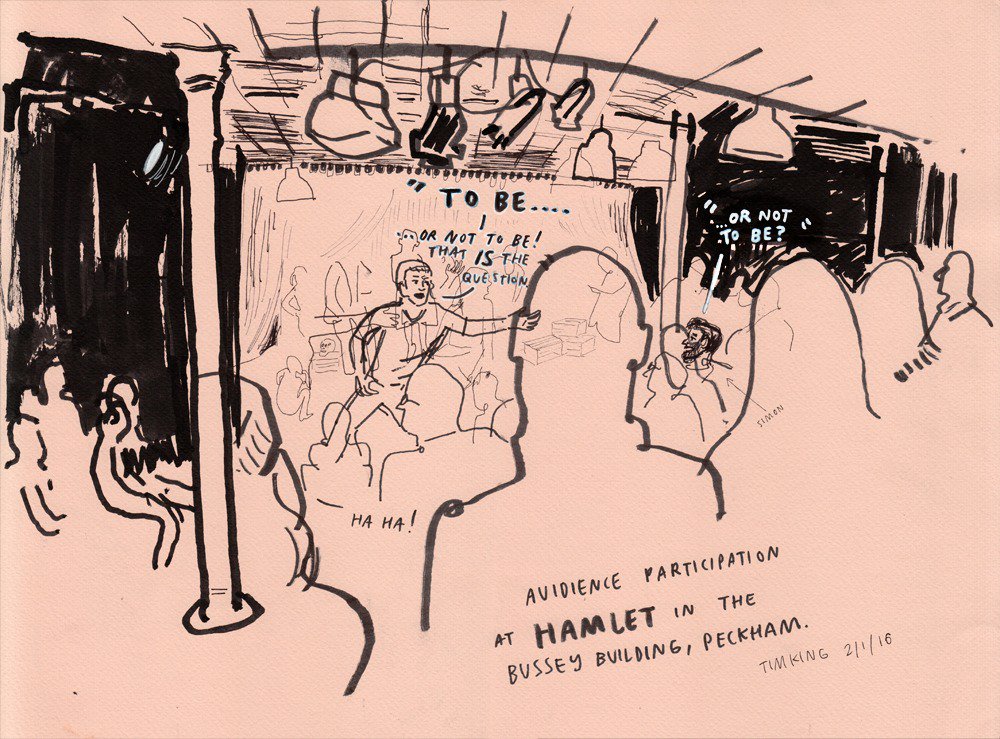 " TO BE....
"...OR NOT TO BE!
THAT IS THE
QUESTION
"...OR NOT
TO BE? "
SIMON
HA HA!
AUIDIENCE PARTICIPATION
AT HAMLET IN THE
BUSSEY BUILDING, PECKHAM.
TIM KING 2/1/16